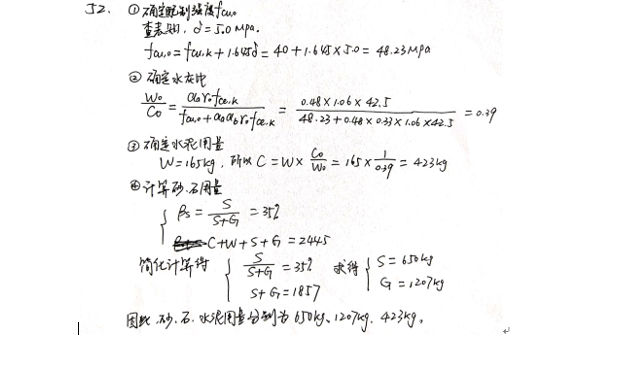 52. ①确定配制强度fcu,o
查表知, σ=5.0MPa.
fcu,o=fcu,k+1.645σ=40+1.645×5.0=48.23MPa
②确定水灰比
Wo/Co = αa·rc·fce,k / (fcu,o+αa·αb·rc·fce,k) = 0.48×1.06×42.5 / (48.23+0.48×0.33×1.06×42.5) = 0.39
③确定水泥用量
W=165kg, 所以 C=W×Co/Wo=165×1/0.39=423kg
④计算砂.石用量
βs=S/(S+G)=35%
C+W+S+G=2445
简化计算得 { S/(S+G)=35% 求得 { S=650kg
S+G=1857 G=1207kg
因此.砂.石.水泥用量分别为650kg、1207kg.423kg.